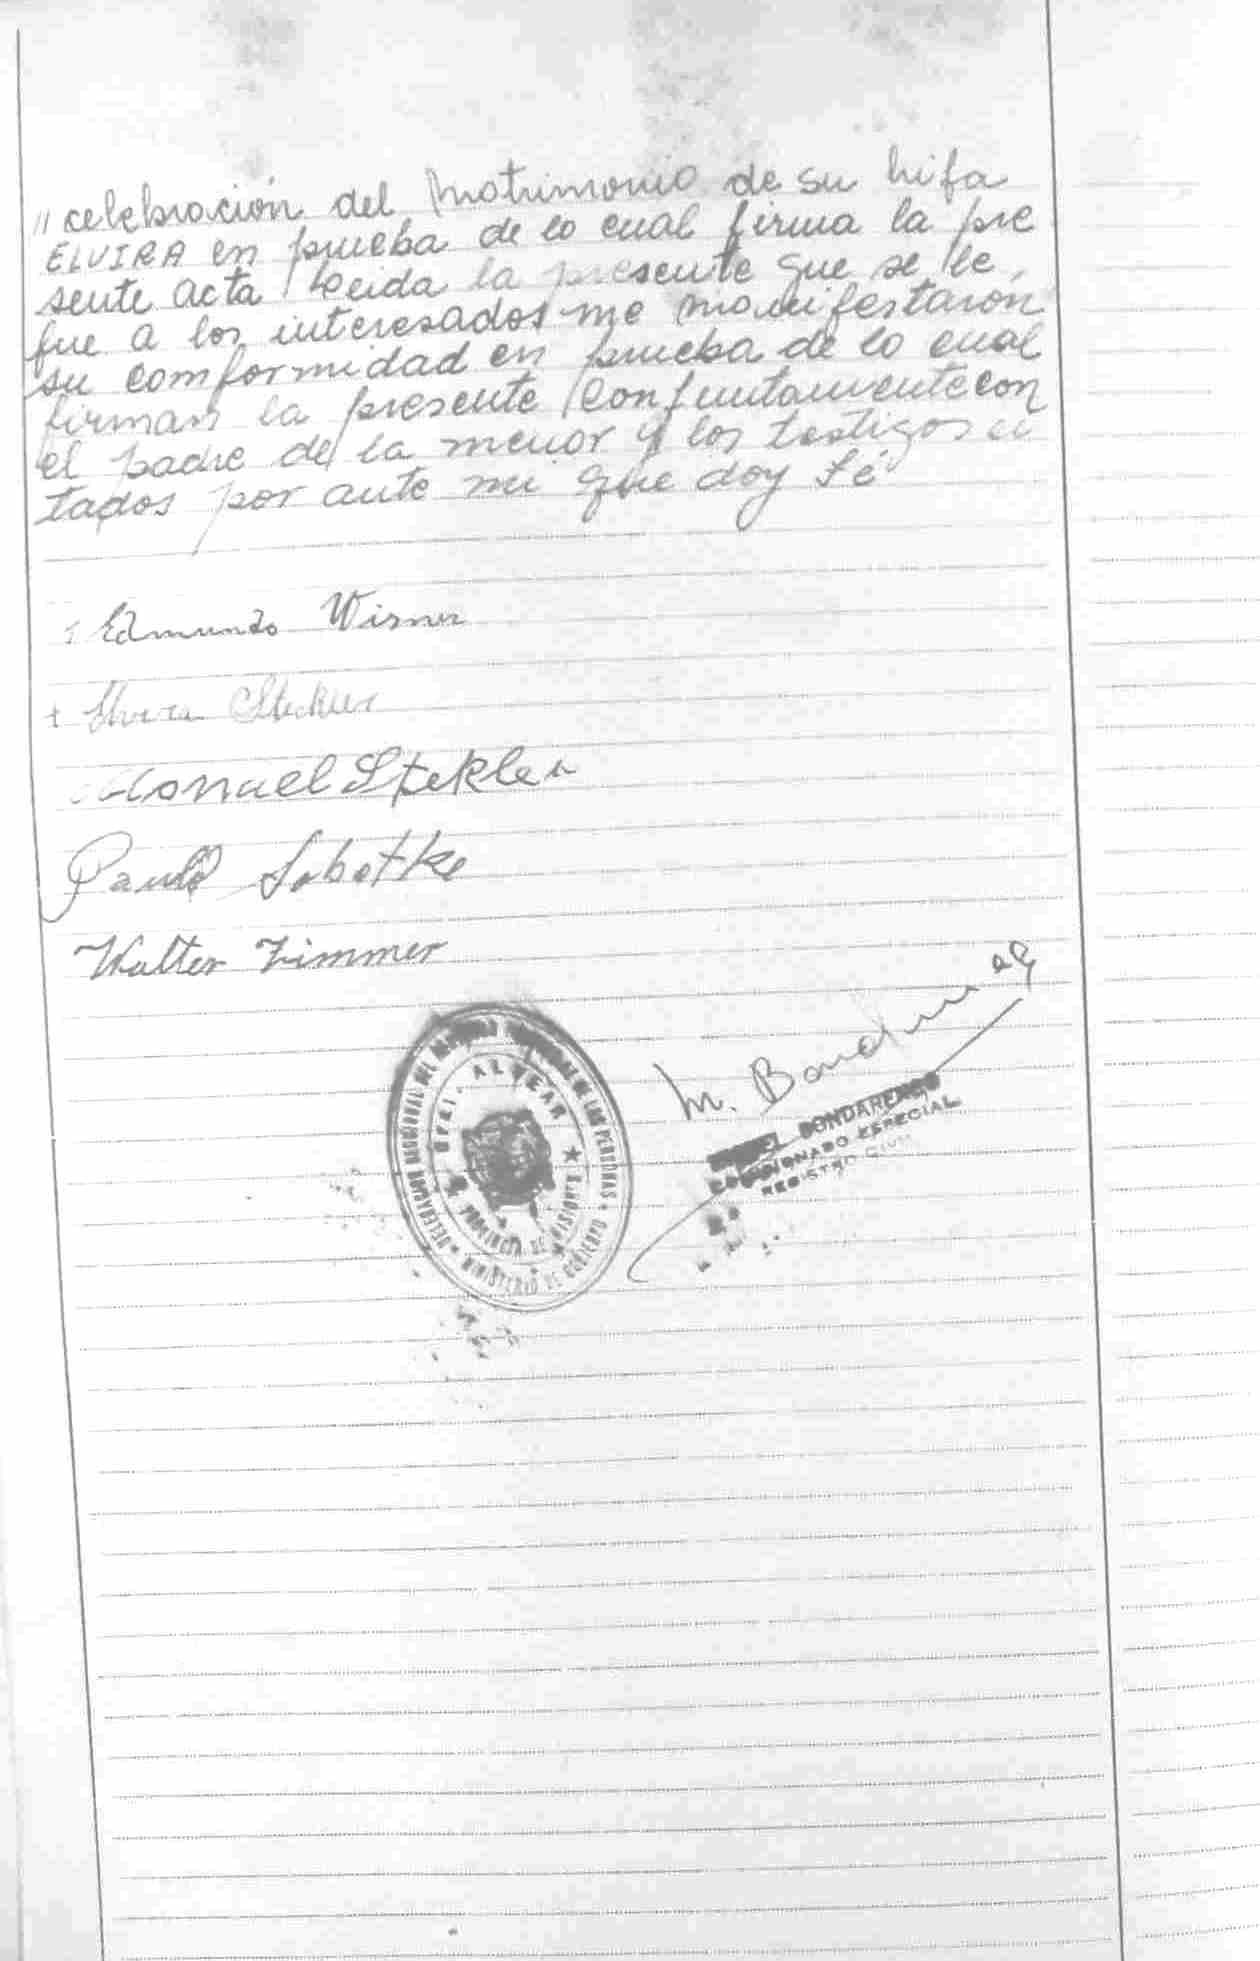 " celebración del Matrimonio de su hifa
ELVIRA en prueba de lo cual firma la pre
sente acta leida la presente que se le,
fue a los interesados me manifestaron
su comformidad en prueba de lo cual
firman la presente Confuntamente con
el padre de la menor y los testigos ci
tados por ante mi que doy fé
Edmundo Wisner
Elvira Stekler
Stekler
Paulo Sabotke
Walter Zimmer
M. Bondarenco
BONDARENCO
COMISIONADO ESPECIAL
REGISTRO CIVIL
DE LAS PERSONAS
ALVEAR
PROVINCIA DE MISIONES
MINISTERIO DE GOBIERNO